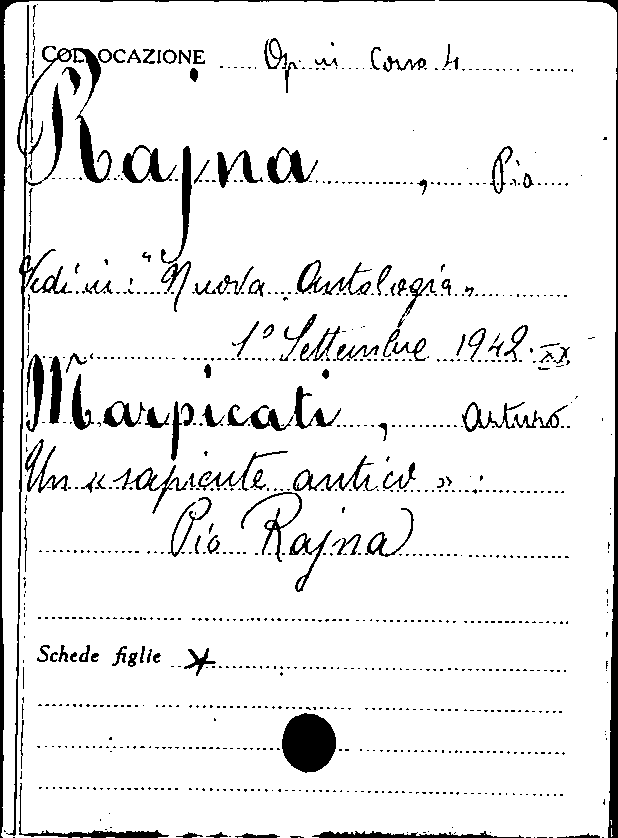 COLLOCAZIONE Op in Corso 4
Rajna, Pio
Vedi in: "Nuova Antologia"
1° Settembre 1942. XX
Marpicati, Arturo
Un « sapiente antico » :
Pio Rajna
Schede figlie *